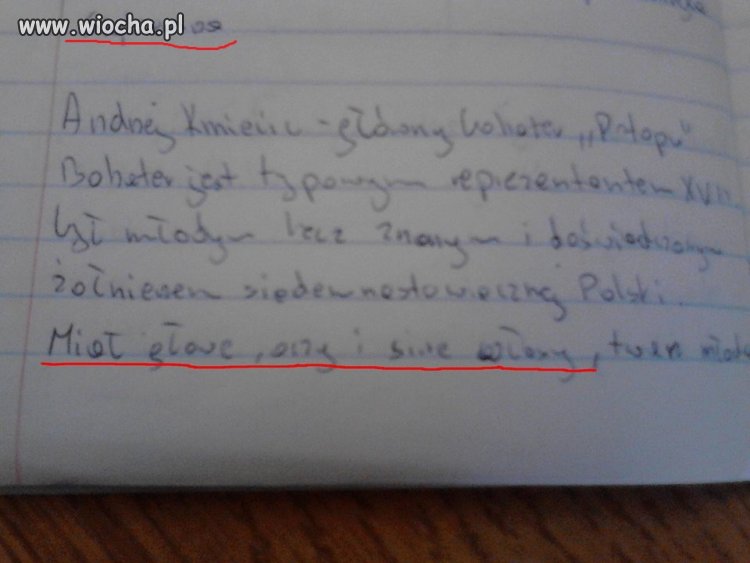 www.wiocha.pl
Andrzej Kmicic - główny bohater „Potopu"
Bohater jest typowym reprezentantem XVII
był młodym lecz znanym i doświadczonym
żołnierzem siedemnastowiecznej Polski.
Miał głowe, oczy i siwe włosy, twarz młodą